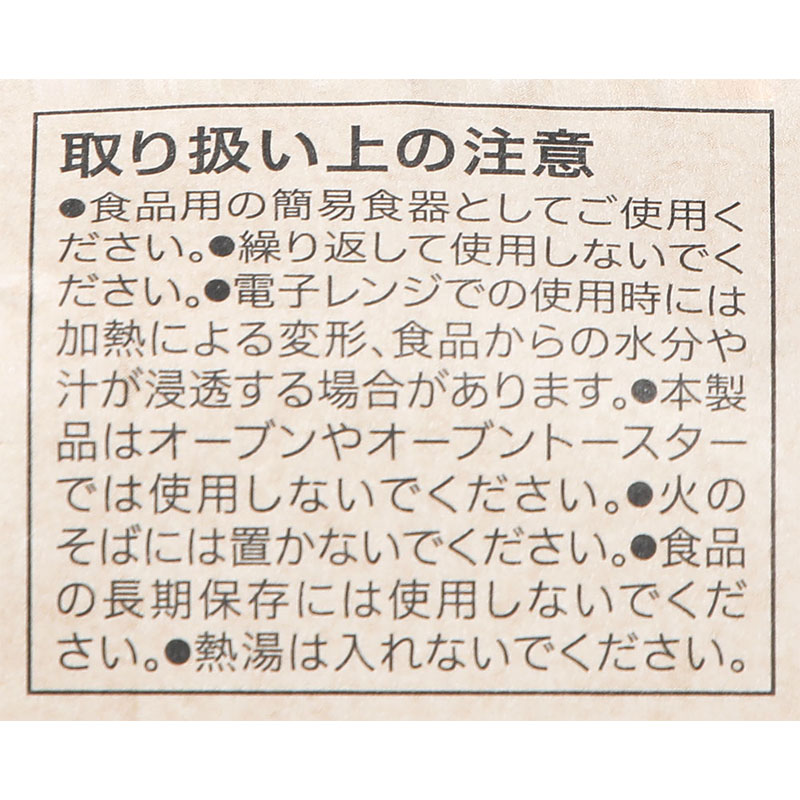 取り扱い上の注意
●食品用の簡易食器としてご使用く
ださい。●繰り返して使用しないでく
ださい。●電子レンジでの使用時には
加熱による変形、食品からの水分や
汁が浸透する場合があります。●本製
品はオーブンやオーブントースター
では使用しないでください。●火の
そばには置かないでください。●食品
の長期保存には使用しないでくだ
さい。●熱湯は入れないでください。